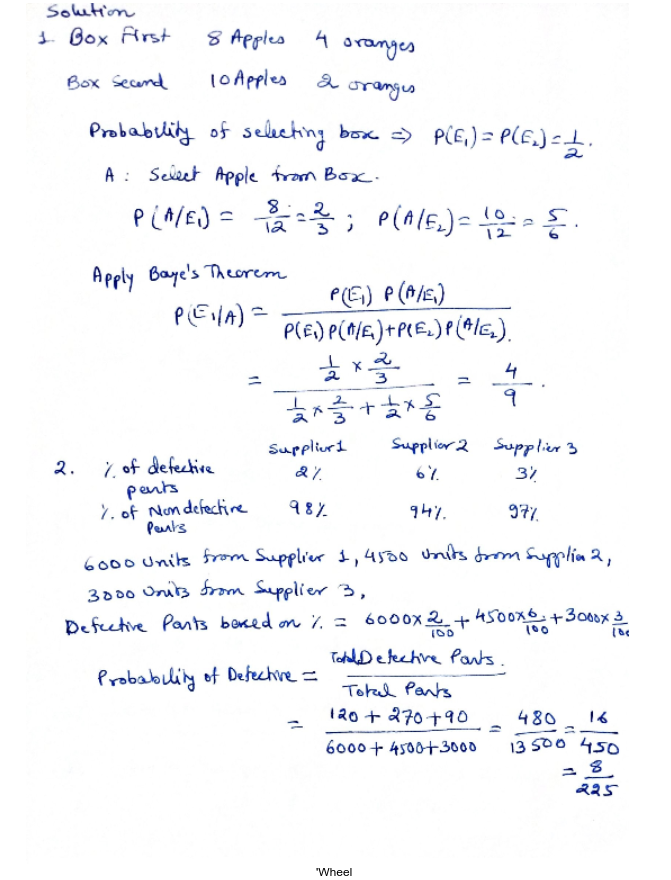 Solution
1. Box First 8 Apples 4 oranges
Box Second 10 Apples 2 oranges
Probability of selecting box ⇒ P(E₁) = P(E₂) = 1/2.
A : Select Apple from Box.
P(A/E₁) = 8/12 = 2/3 ; P(A/E₂) = 10/12 = 5/6.
Apply Baye's Theorem
P(E₁/A) = P(E₁) P(A/E₁) / P(E₁) P(A/E₁) + P(E₂) P(A/E₂).
= 1/2 × 2/3 / 1/2 × 2/3 + 1/2 × 5/6 = 4/9.
Supplier 1 Supplier 2 Supplier 3
2. % of defective parts 2% 6% 3%
% of Non defective Parts 98% 94% 97%
6000 Units from Supplier 1, 4500 units from Supplier 2,
3000 Units from Supplier 3,
Defective Parts based on % = 6000 × 2/100 + 4500 × 6/100 + 3000 × 3/100
Probability of Defective = Total Defective Parts. / Total Parts
= 120 + 270 + 90 / 6000 + 4500 + 3000 = 480/13500 = 16/450
= 8/225
'Wheel